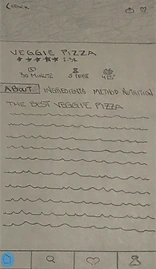 VEGGIE PIZZA
30 MINUTE
ABOUT INGREDIENTS METHOD NUTRITION
THE BEST VEGGIE PIZZA